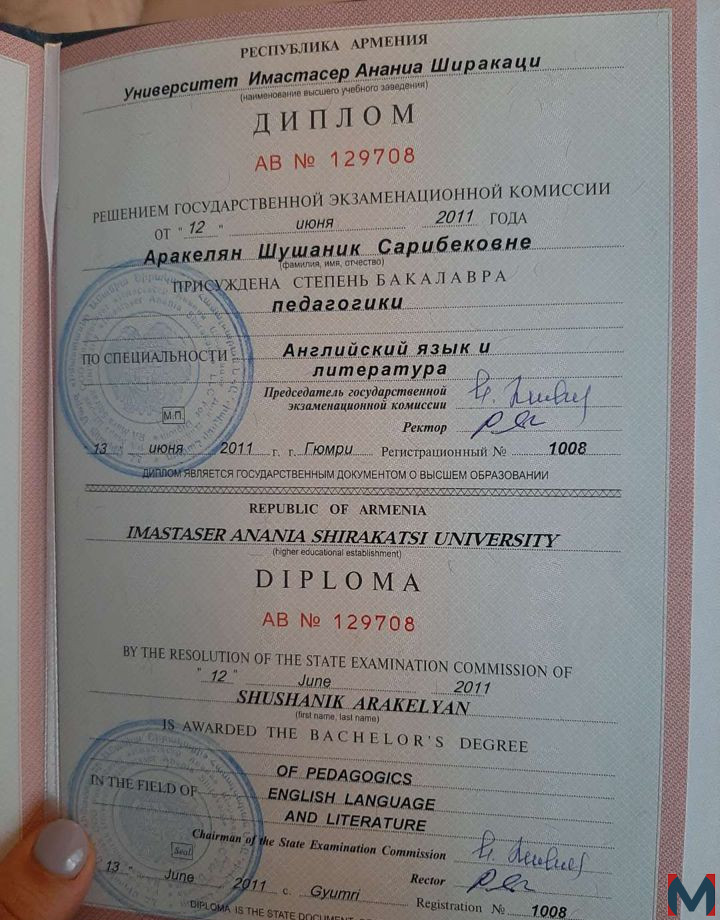 РЕСПУБЛИКА АРМЕНИЯ
Университет Имастасер Анания Ширакаци
(наименование высшего учебного заведения)
ДИПЛОМ
АВ № 129708
РЕШЕНИЕМ ГОСУДАРСТВЕННОЙ ЭКЗАМЕНАЦИОННОЙ КОМИССИИ
ОТ " 12 " июня 2011 ГОДА
Аракелян Шушаник Сарибековне
(фамилия, имя, отчество)
ПРИСУЖДЕНА СТЕПЕНЬ БАКАЛАВРА
педагогики
ПО СПЕЦИАЛЬНОСТИ Английский язык и
литература
Председатель государственной
экзаменационной комиссии
М.П.
Ректор
13 " июня 2011 г. г. Гюмри Регистрационный № 1008
ДИПЛОМ ЯВЛЯЕТСЯ ГОСУДАРСТВЕННЫМ ДОКУМЕНТОМ О ВЫСШЕМ ОБРАЗОВАНИИ
REPUBLIC OF ARMENIA
IMASTASER ANANIA SHIRAKATSI UNIVERSITY
(higher educational establishment)
DIPLOMA
АВ № 129708
BY THE RESOLUTION OF THE STATE EXAMINATION COMMISSION OF
" 12 " June 2011
SHUSHANIK ARAKELYAN
(first name, last name)
IS AWARDED THE BACHELOR'S DEGREE
OF PEDAGOGICS
IN THE FIELD OF ENGLISH LANGUAGE
AND LITERATURE
Chairman of the State Examination Commission
Seal
Rector
13 " June 2011 c. Gyumri Registration № 1008
DIPLOMA IS THE STATE DOCUMENT
M